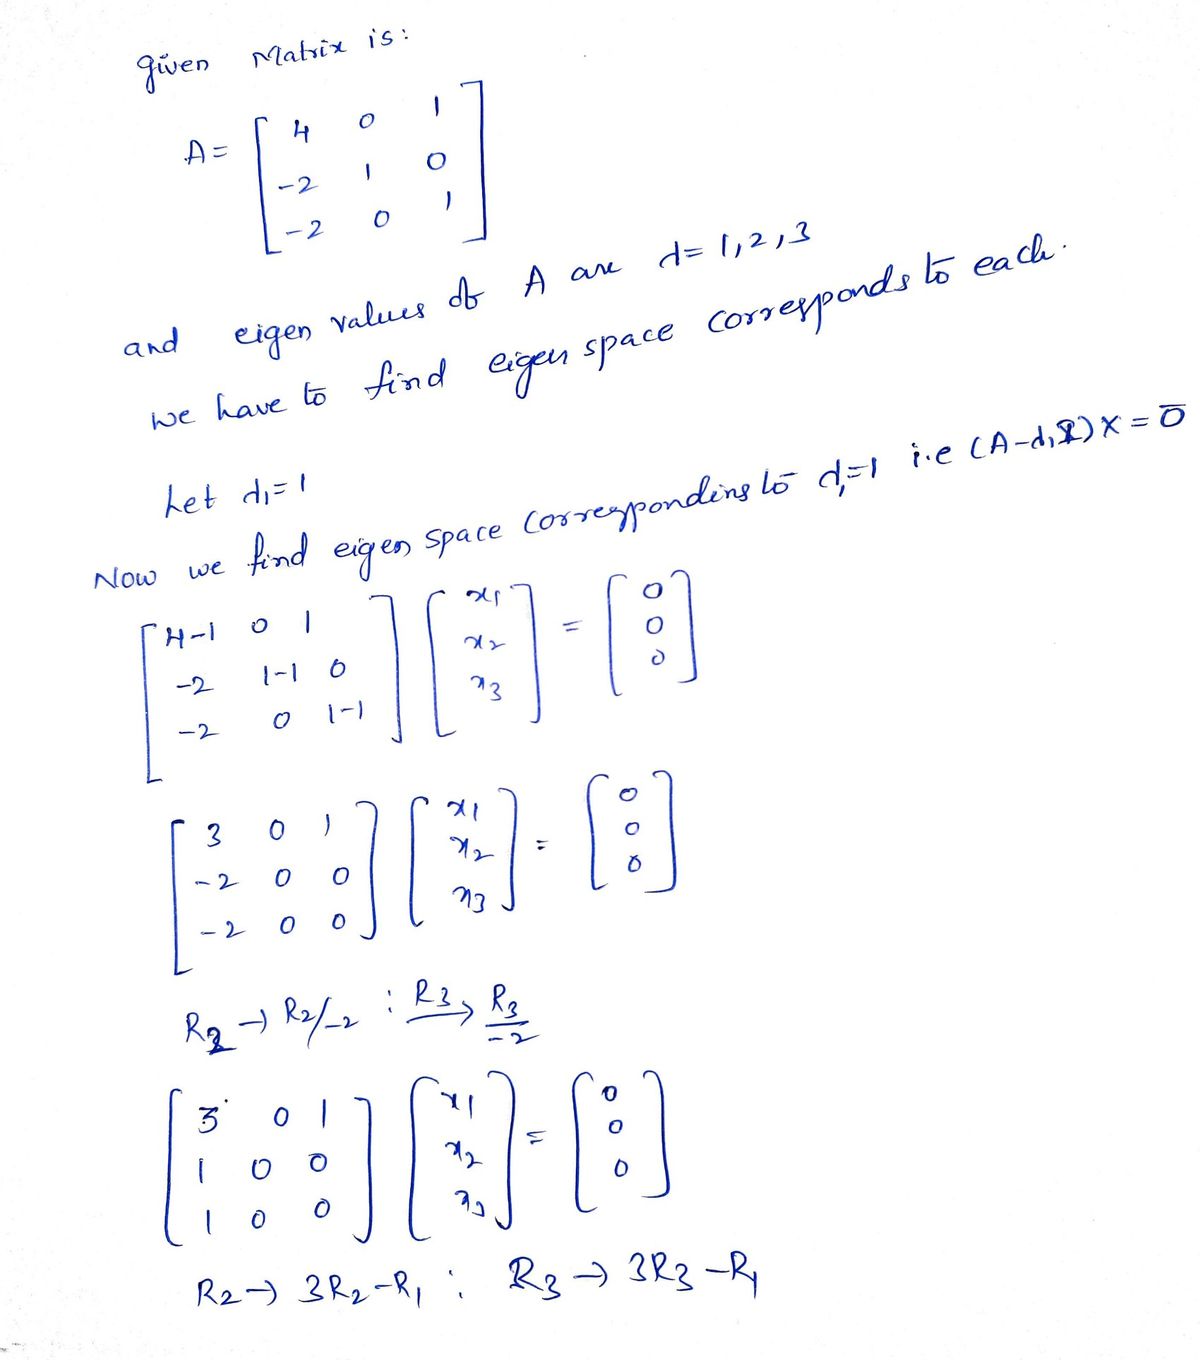 given Matrix is:
A = [ 4 0 1
-2 1 0
-2 0 1 ]
and eigen values of A are d = 1, 2, 3
we have to find eigen space corresponds to each.
Let d₁ = 1
Now we find eigen space corresponding to d₁=1 i.e (A-d₁I)X = 0̄
[ 4-1 0 1 ] [ x1 ] = [ 0 ]
[ -2 1-1 0 ] [ x2 ] [ 0 ]
[ -2 0 1-1 ] [ x3 ] [ 0 ]
[ 3 0 1 ] [ x1 ] = [ 0 ]
[ -2 0 0 ] [ x2 ] [ 0 ]
[ -2 0 0 ] [ x3 ] [ 0 ]
R2 → R2/-2 : R3 → R3/-2
[ 3 0 1 ] [ x1 ] = [ 0 ]
[ 1 0 0 ] [ x2 ] [ 0 ]
[ 1 0 0 ] [ x3 ] [ 0 ]
R2 → 3R2 - R1 : R3 → 3R3 - R1